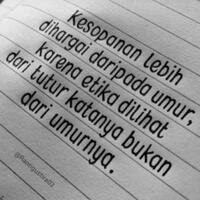 Kesopanan lebih
dihargai daripada umur,
karena etika dilihat
dari tutur katanya bukan
dari umurnya.